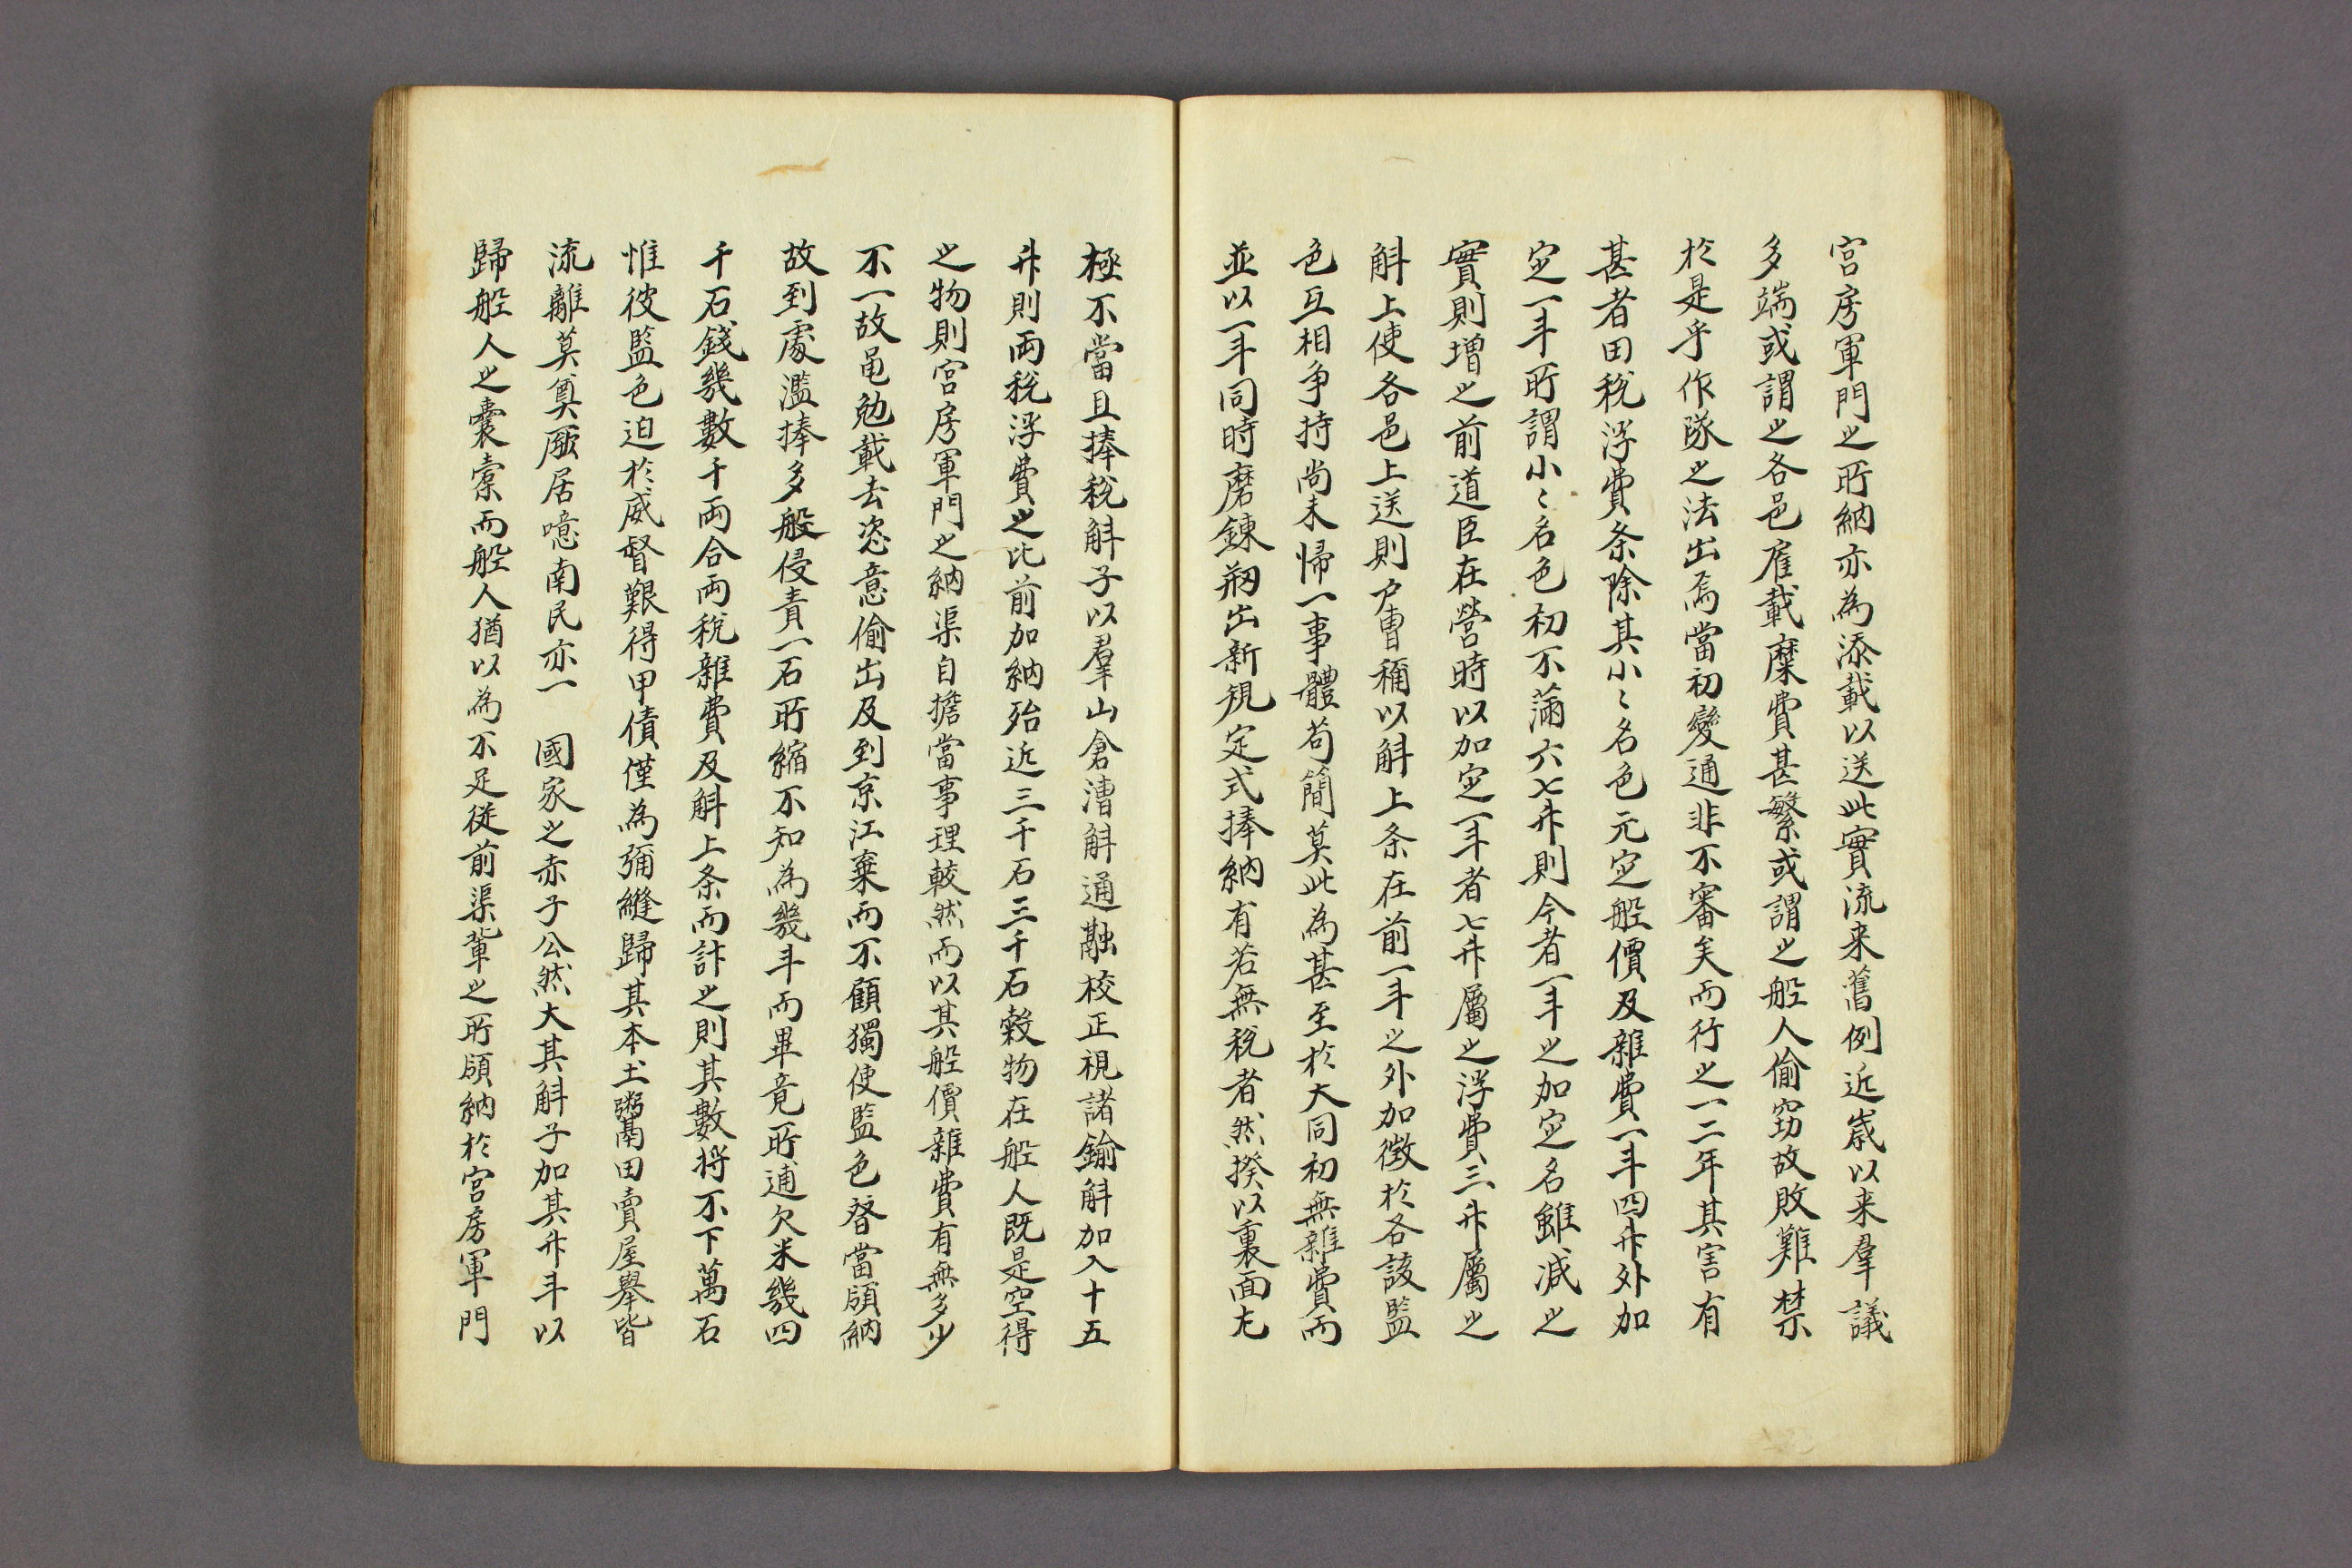 宮房軍門之所納亦為添載以送此實流来舊例近歲以来羣議
多端或謂之各邑雇載糜費甚繁或謂之船人偷窃故敗難禁
於是乎作隊之法出焉當初變通非不審矣而行之一二年其害有
甚者田稅浮費条除其小〻名色元定船價及雜費一斗四升外加
定一斗所謂小〻名色初不滿六七升則今者一斗之加定名雖减之
實則增之前道臣在營時以加定一斗者七升屬之浮費三升屬之
斛上使各邑上送則戶曹稱以斛上条在前一斗之外加徵於各該監
色互相爭持尚未帰一事體苟簡莫此為甚至於大同初無雜費而
並以一斗同時磨鍊刱出新規定式捧納有若無稅者然揆以裏面尤
極不當且捧稅斛子以羣山倉漕斛通融校正視諸鍮斛加入十五
升則両稅浮費之比前加納殆近三千石三千石穀物在船人旣是空得
之物則宮房軍門之納渠自擔當事理較然而以其船價雜費有無多少
不一故黽勉載去恣意偷出及到京江棄而不顧獨使監色督當領納
故到處濫捧多般侵責一石所縮不知為幾斗而畢竟所逋欠米幾四
千石錢幾數千両合両稅雜費及斛上条而計之則其數将不下萬石
惟彼監色迫於威督艱得甲債僅為彌縫歸其本土鬻田賣屋擧皆
流離莫奠厥居噫南民亦一 國家之赤子公然大其斛子加其升斗以
歸船人之囊橐而船人猶以為不足從前渠輩之所領納於宮房軍門